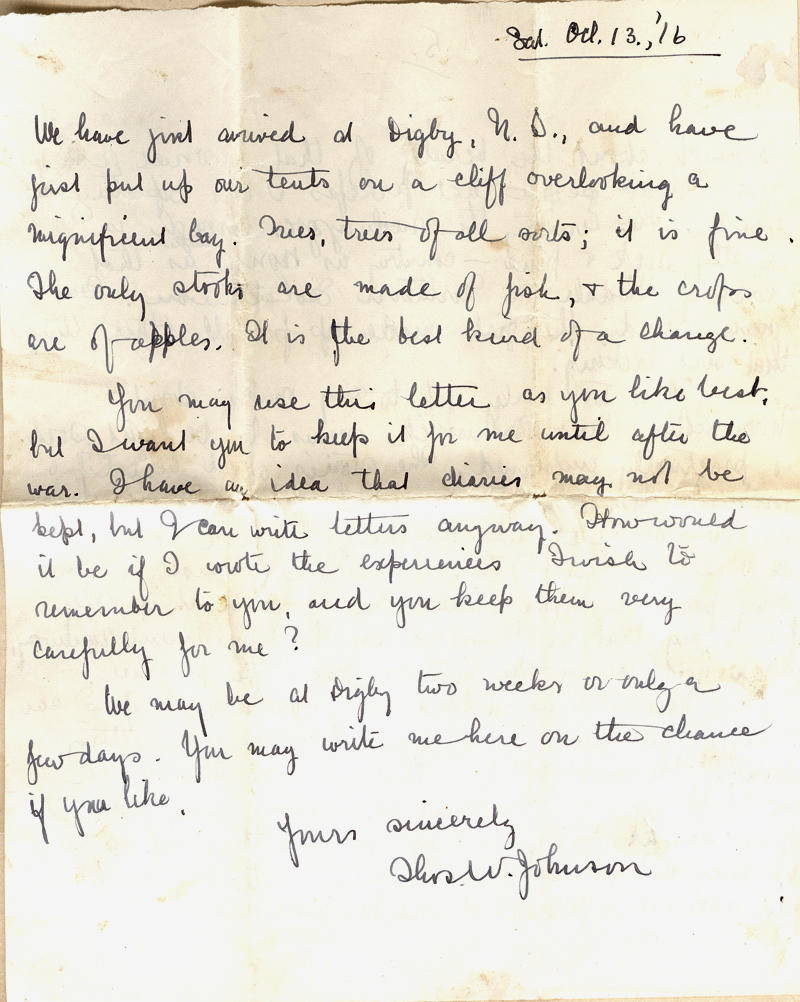 Sat. Oct. 13., '16
We have just arrived at Digby, N. S., and have
just put up our tents on a cliff overlooking a
mignificient bay. Trees, trees of all sorts; it is fine.
The only stooks are made of fish, & the crops
are of apples. It is the best kind of a change.
You may use this letter as you like best,
but I want you to keep it for me until after the
war. I have an idea that diaries may not be
kept, but I can write letters anyway. How would
it be if I wrote the experiences I wish to
remember to you, and you keep them very
carefully for me?
We may be at Digby two weeks or only a
few days. You may write me here on the chance
if you like.
Yours sincerely
Thos. W. Johnson